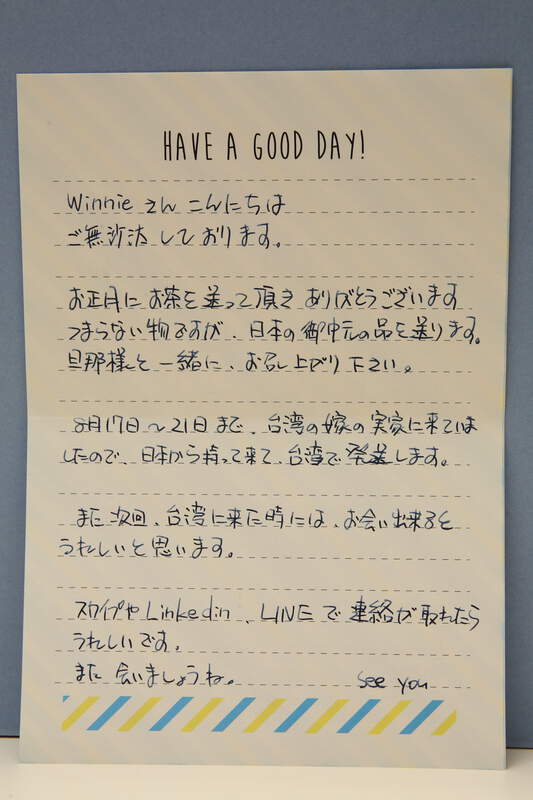 HAVE A GOOD DAY!
Winnie さん こんにちは
ご無沙汰しております。
お正月にお茶を送って頂き ありがとうございます
つまらない物ですが、日本の御中元の品を送ります。
旦那様と一緒に、お召し上がり下さい。
8月17日〜21日まで、台湾の嫁の実家に来ていま
したので、日本から持って来て、台湾で発送します。
また次回、台湾に来た時には、お会い出来ると
うれしいと思います。
スカイプやLinkedin、LINEで連絡が取れたら
うれしいです。
また会いましょうね。 see you